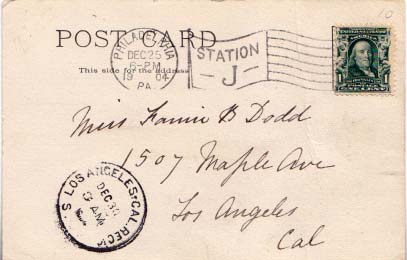 10
POST CARD
This side for the address
PHILADELPHIA
DEC 25
6-PM
19 04
PA.
STATION
J
ONE CENT
Miss Fannie B Dodd
1507 Maple Ave
Los Angeles
Cal
LOS ANGELES, CAL. REC'D
DEC 30
AM